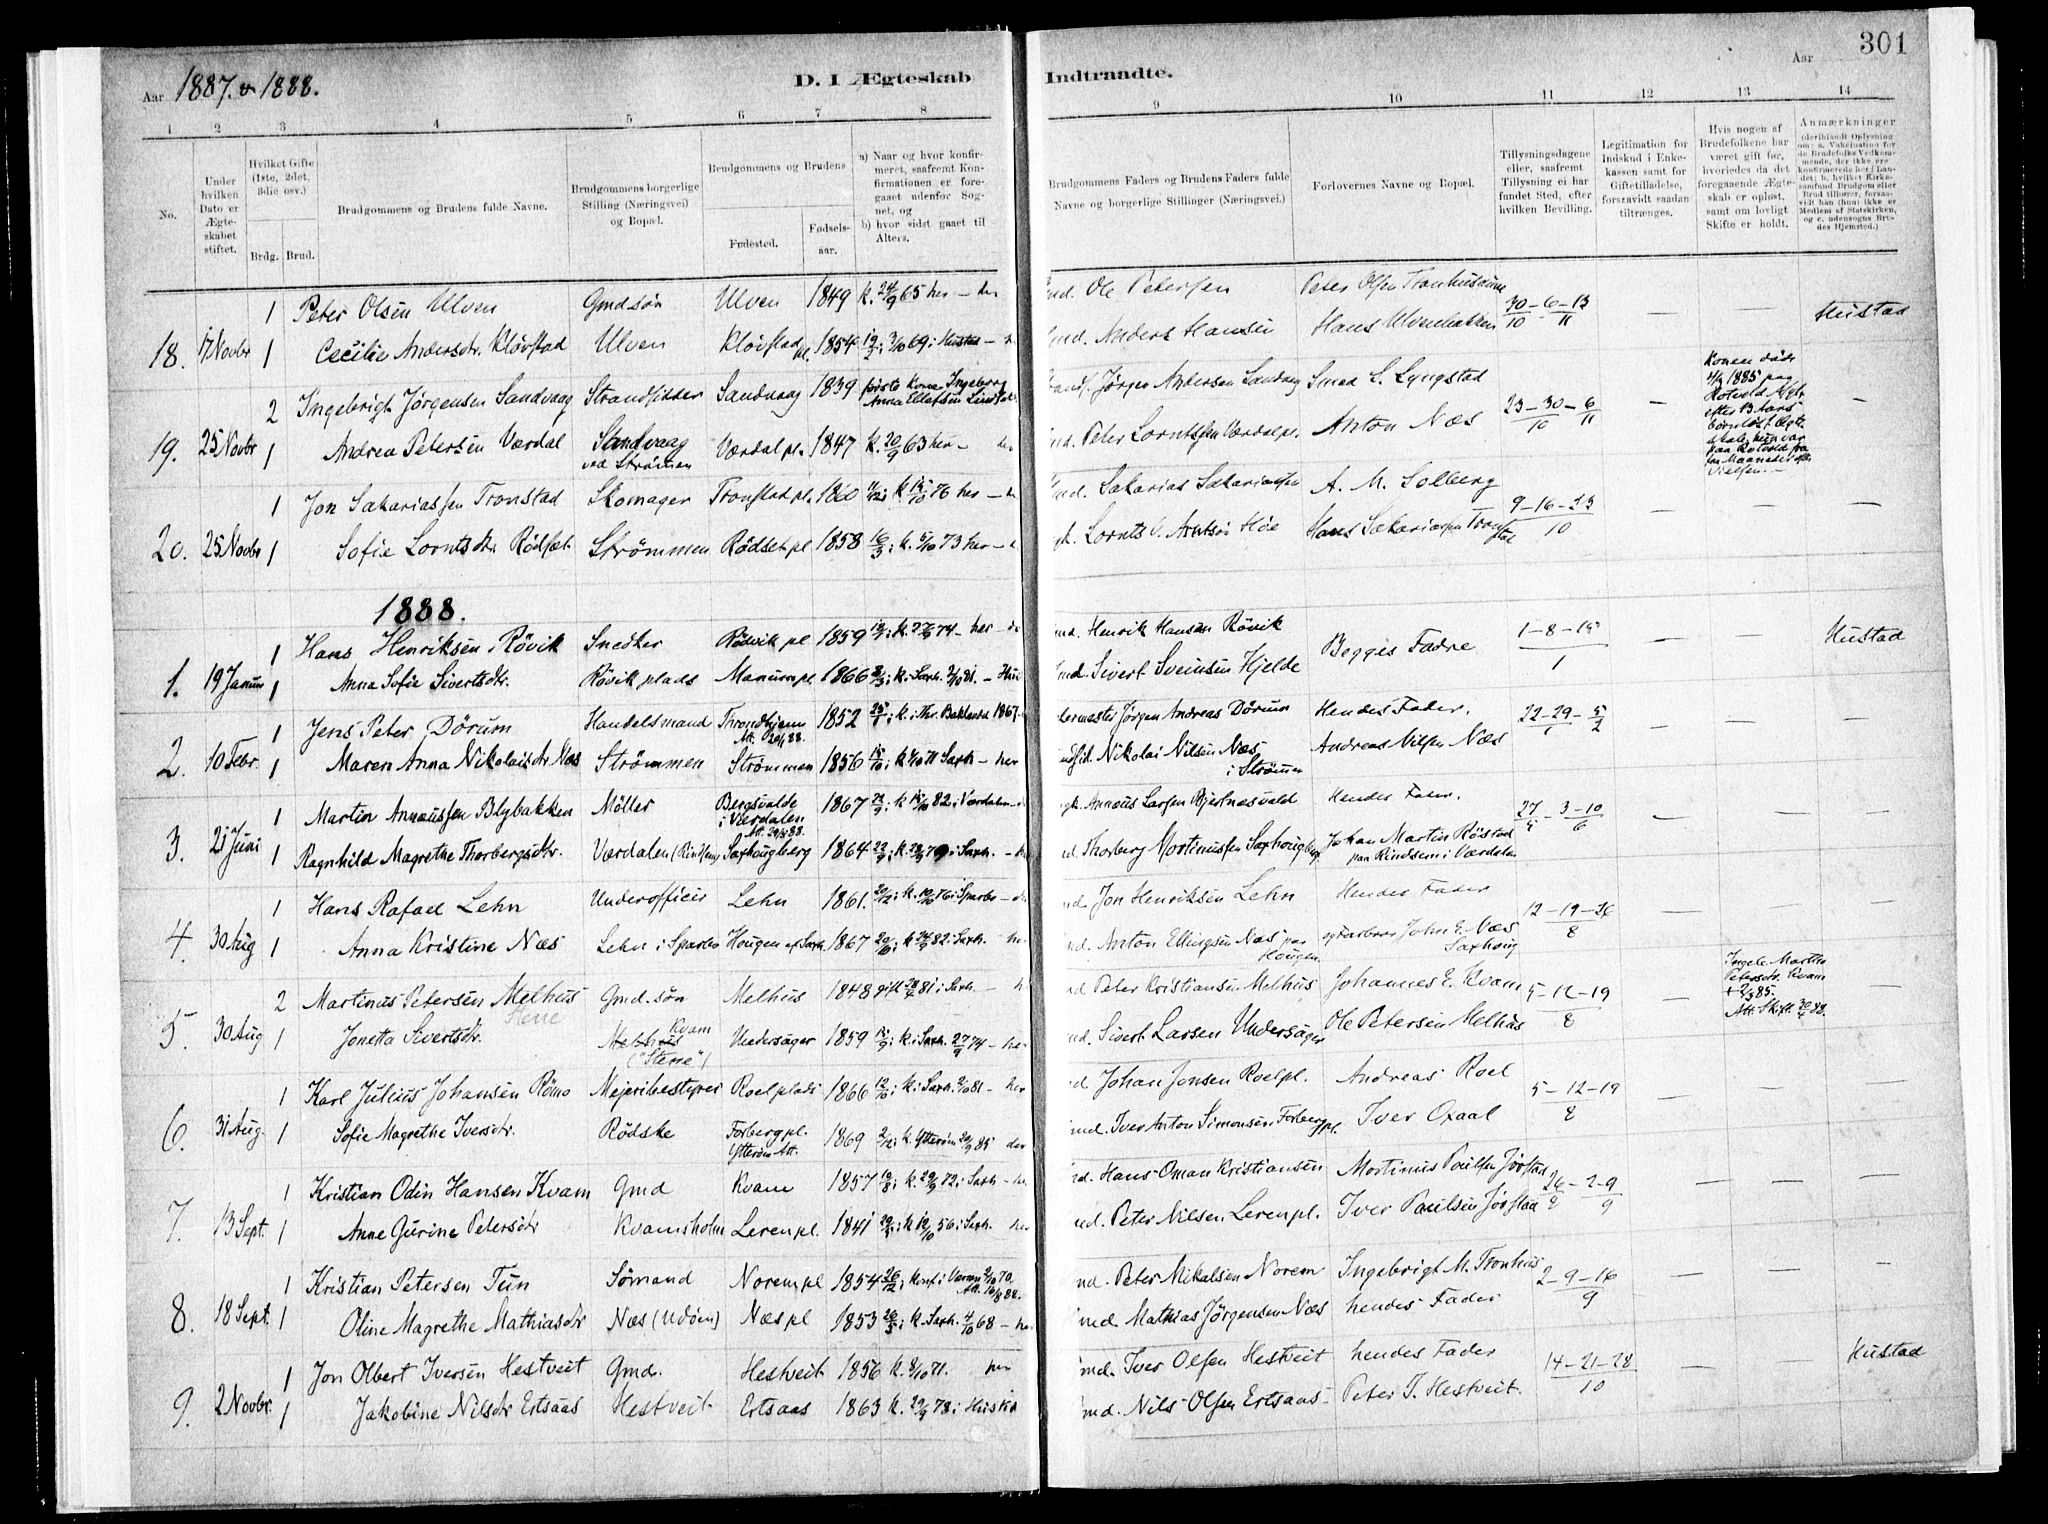 301
Aar 1887. & 1888.
D. I Ægteskab
Indtraadte.
Aar
1 2 3 4 5 6 7 8
9 10 11 12 13 14
No.
Under hvilken Dato er Ægteskabet stiftet.
Hvilket Gifte (1ste, 2det, 3die osv.)
Brdg. Brud.
Brudgommens og Brudens fulde Navne.
Brudgommens borgerlige Stilling (Næringsvei) og Bopæl.
Brudgommens og Brudens
Fødested.
Fødselsaar.
a) Naar og hvor konfirmeret, saafremt Konfirmationen er foregaaet udenfor Sognet, og
b) hvor sidst gaaet til Alters.
Brudgommens Faders og Brudens Faders fulde Navne og borgerlige Stillinger (Næringsvei.)
Forlovernes Navne og Bopæl.
Tillysningsdagene eller, saafremt Tillysning ei har fundet Sted, efter hvilken Bevilling.
Legitimation for Indskud i Enkekassen samt for Giftetilladelse, forsaavidt saadan tiltrænges.
Hvis nogen af Brudefolkene har været gift før, hvoriedes da det foregaaende Ægteskab er opløst, samt om lovligt Skifte er holdt.
Anmærkninger
1 Peter Olsen Ulven Gmdsøn Ulven 1849 k. 24/9 65 her — her
Ole Petersen Peter Olsen Tronhusaune 30 – 6 – 13 / 10 11 — — Hustad
18. 17 Novbr 1 Cecilie Andersdtr. Kløvstad Ulven Kløvstad pl. 1854 k. 3/10 69 i Hustad —
Anders Hansen Hans Ulvenbakken
2 Ingebrigt Jörgensen Sandvaag Strandsidder Sandvaag 1839 første Kone Ingeborg Anna
Jörgen Andersen Sandvaag Smed L. Lyngstad 23 – 30 – 6 / 10 11 — Konen døde 1885 paa Rotvold —
19. 25 Novbr 1 Andrea Petersen Værdal Sandvaag ved Strømmen Værdal pl. 1847 k. 20/9 63 her — her
Peter Lorntsen Værdal pl. Anton Næs
1 Jon Sakariassen Tronstad Skomager Tronstad pl. 1860 k. 15/10 76 her —
Sakarias Sakariassen A. M. Solberg 9 – 16 – 23 / 10 — — —
20. 25 Novbr 1 Sofie Lorntsdtr. Rödset Strömmen Rödset pl 1858 16/3; k. 5/10 73 her —
Lornts Arntsen Höe Hans Sakariassen Tronstad
1888.
1 Hans Henriksen Rövik Snedker Rödvik pl 1859 k. 74 — her
Henrik Hansen Rövik Begges Fædre 1 – 8 – 15 / 1 — — Hustad
1. 19 Januar 1 Anna Sofie Sivertsdtr. Rövik plads Manum pl. 1866 k. Saxh. 2/10 81. —
Sivert Sveinsen Hjelde
1 Jens Peter Dörum Handelsmand Throndhjem Att. 88. 1852 k. i Thr. Baklandet 1867
Jörgen Andreas Dörum Hendes Fader. 22 – 29 – 5 / 1 2 — — —
2. 10 Febr. 1 Maren Anna Nikolaisdtr Næs Strömmen Strömmen 1856 15/10; k 71 Saxh — her
Nikolai Nilsen Næs i Strömmen Andreas Nilsen Næs
1 Martin Annæussen Blybakken Möller Bergsvalde i Værdalen Att. 88. 1867 k 15/10 82 i Værdalen
Annæus Larsen Hendes Fader. 27 – 3 – 10 / 5 6 — — —
3. 21 Juni 1 Ragnhild Magrethe Thorbergsdtr. Værdalen (Rindsem) Saxhougberg 1864 22/9; k. 79 i Saxh.
Thorberg Mortinussen Saxhougberg Johan Martin Röstad paa Rindsem i Værdalen
1 Hans Rafael Lehn Underofficer Lehn 1861. 20/12; k. 10/10 76 i Sparbo —
Jon Henriksen Lehn Hendes Fader 12 – 19 – 26 / 8 — — —
4. 30 Aug 1 Anna Kristine Næs Lehn i Sparbo Hougen af Saxh. 1867 20/10; k 24/9 82 i Saxh. — her
Anton Ellingsen Næs paa Hougen og Farbror John E. Næs Saxhoug
2 Martinus Petersen Melhus Gmd. søn Melhus 1848 gift 81 i Saxh. —
Stene
Peter Kristiansen Melhus Johannes E. Kvam 5 – 12 – 19 / 8 — Ingeb. Martha Petersdtr. Kvam † 2/3 85. Att. Skift. 88. —
5. 30 Aug 1 Jonetta Sivertsdtr. Melhus Kvam ("Stene") Undersager 1859 15/9; k. i Saxh. 27/9 74 — her
Sivert Larsen Undersager Ole Petersen Melhus
1 Karl Julius Johansen Römo Mejeribestyrer Roel plads 1866 12/10; k. i Saxh. 2/10 81 — her
Johan Jonsen Roel pl. Andreas Roel 5 – 12 – 19 / 8 — — —
6. 31 Aug. 1 Sofie Magrethe Iversdtr. Rödske Forberg pl. Ytterøn Att. 1869 2/12; k. Ytterøn 20/9 85 der
Iver Anton Simonsen Forberg pl. Iver Oxaal
1 Kristian Odin Hansen Kvam Gmd Kvam 1857 19/8; k. 29/9 72 i Saxh —
Hans Oman Kristiansen Mortinus Paulsen Jörstad 26 – 2 – 9 / 8 9 — — —
7. 13 Sept. 1 Anne Gurine Petersdtr Kvamsholm Leren pl. 1841 k 12/10 56 i Saxh. her
Peter Nilsen Leren pl. Iver Paulsen Jörstad
1 Kristian Petersen Tun Sömand Norem pl 1854 26/12; konf. i Væran 2/10 70. Att. 16/8 88.
Peter Mikalsen Norem Ingebrigt M. Tronhus 2 – 9 – 16 / 9 — — —
8. 18 Sept. 1 Oline Magrethe Mathiasdtr Næs (Udöen) Næs pl 1853 26/3; k. Saxh. 4/10 68 —
Mathias Jörgensen Næs hendes Fader
1 Jon Olbert Iversen Hestveit Gmd. Hestveit 1856 k. 8/10 71. her
Iver Olsen Hestveit hendes Fader 14 – 21 – 28 / 10 — — Hustad
9. 2 Novbr. 1 Jakobine Nilsdtr Ertsaas Hestveit Ertsaas 1863 k. 29/9 78 i Hustad
Nils Olsen Ertsaas Peter T. Hestveit.